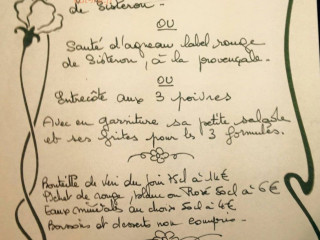 de Sisteron -
OU
Sauté d'agneau label rouge
de Sisteron, à la provençale.
OU
Entrecôte aux 3 poivres
Avec en garniture sa petite salade
et ses frites pour les 3 formules.
Bouteille de vin du Join 75cl à 14€
Pichet de rouge ou Rosé 50cl à 6€
Eaux minérales au choix 50cl à 4€
Boissons et desserts non compris -